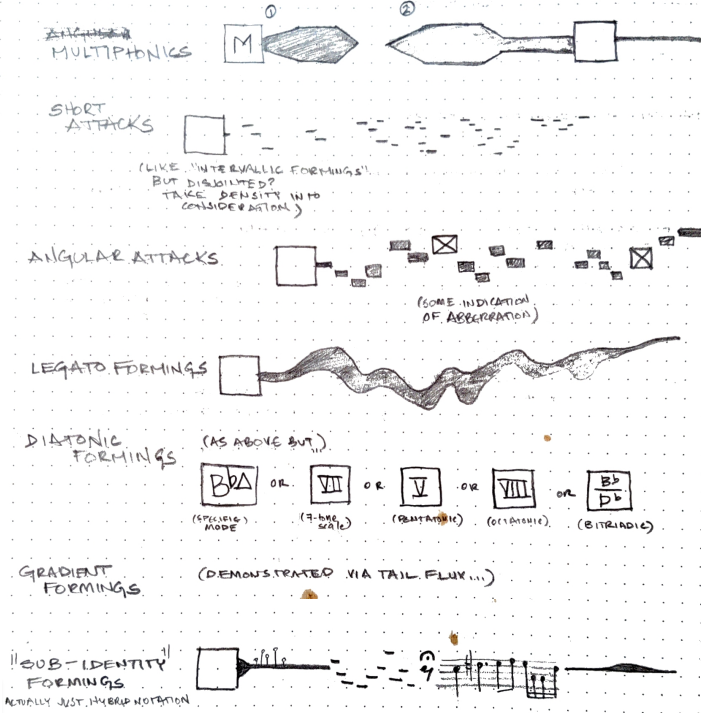 ① ②
MULTIPHONICS
M
SHORT
ATTACKS
(LIKE "INTERVALLIC FORMINGS"
BUT DISJOINTED?
TAKE DENSITY INTO
CONSIDERATION)
ANGULAR ATTACKS
(SOME INDICATION
OF ABBERRATION)
LEGATO FORMINGS
DIATONIC
FORMINGS
(AS ABOVE BUT...)
B♭Δ OR VII OR V OR VIII OR B♭/D♭
(SPECIFIC) MODE
(7-tone scale)
(PENTATONIC)
(OCTATONIC)
(BITRIADIC)
GRADIENT
FORMINGS
(DEMONSTRATED VIA TAIL FLUX...)
"SUB-IDENTITY"
FORMINGS
ACTUALLY JUST HYBRID NOTATION